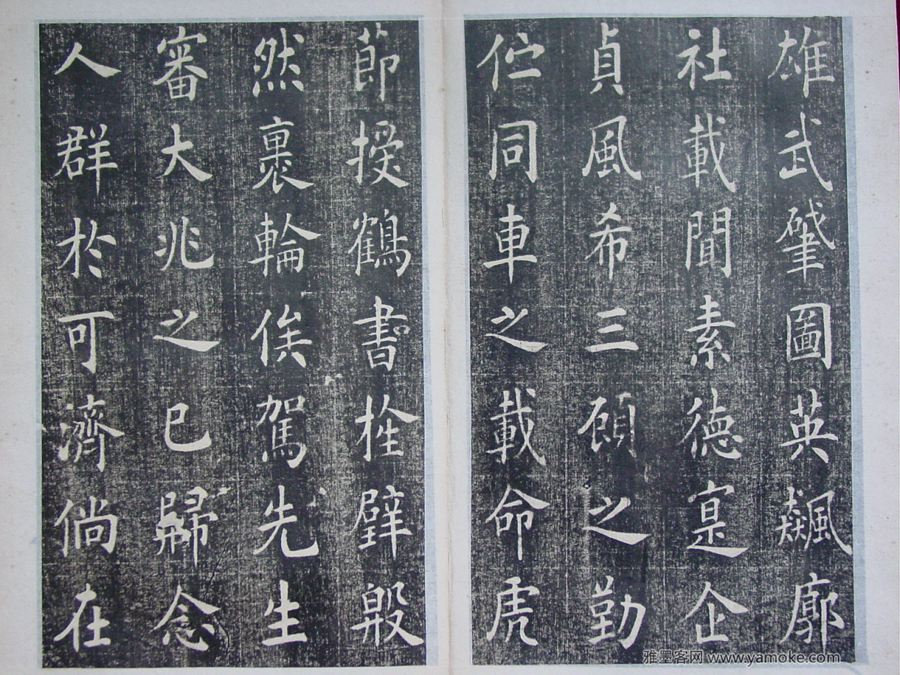 雄武肇圖英飆廓
社載聞素德寔企
貞風希三顧之勤
伫同車之載命虎
節授鶴書栓璧殷
然裹輪俟駕先生
審大兆之已歸念
人群於可濟倘在
雅墨客网 www.yamoke.com